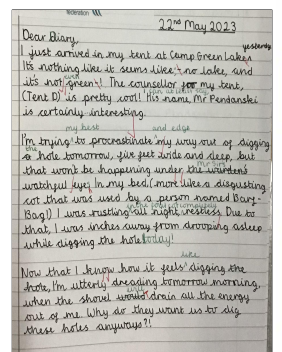 22nd May 2023
Dear Diary,
yesterday
I just arrived in my tent at Camp Green Lake.
It's nothing like it seems like: no lake, and
even
it's not green! The counsellor for my tent,
(Tent D) is pretty cool! His name, Mr Pendanski
is certainly interesting.
my best and edge
I'm trying to procrastinate my way out of digging
the
a hole tomorrow, five feet wide and deep, but
that won't be happening under the warden's
Mr Sir's
watchful eye. In my bed, (more like a disgusting
cot that was used by a person named Barf-
Bag!) I was rustling all night restless. Due to
that, I was inches away from drooping asleep
while digging the hole today!
Now that I know how it feels digging the
like
hole, I'm utterly dreading tomorrow morning,
when the shovel would drain all the energy
out of me. Why do they want us to dig
these holes anyways?!